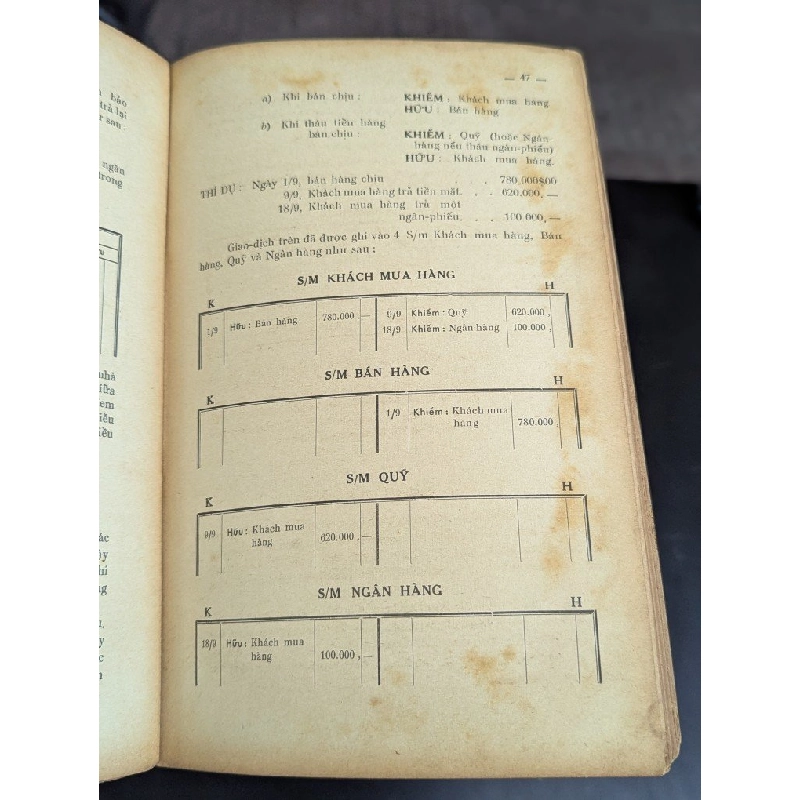 bảo
trả lại
sau
ngân
trong
— 47 —
a) Khi bán chịu : KHIẾM : Khách mua hàng
HỮU : Bán hàng
b) Khi thâu tiền hàng
bán chịu : KHIẾM : Quỹ (hoặc Ngân-
hàng nếu thâu ngân-phiếu)
HỮU : Khách mua hàng.
THÍ DỤ : Ngày 1/9, bán hàng chịu . . 780.000$00
9/9, Khách mua hàng trả tiền mặt. . . 620.000,—
18/9, Khách mua hàng trả một
ngân-phiếu. . . 100.000,—
Giao-dịch trên đã được ghi vào 4 S/m Khách mua hàng, Bán
hàng, Quỹ và Ngân hàng như sau :
S/M KHÁCH MUA HÀNG
K H
1/9 Hữu : Bán hàng 780.000 — 9/9 Khiếm : Quỹ 620.000,
18/9 Khiếm : Ngân hàng 100.000,
S/M BÁN HÀNG
K H
1/9 Khiếm : Khách mua
hàng 780.000,
S/M QUỸ
K H
9/9 Hữu : Khách mua
hàng 620.000,—
S/M NGÂN HÀNG
K H
18/9 Hữu : Khách mua
hàng 100.000,—